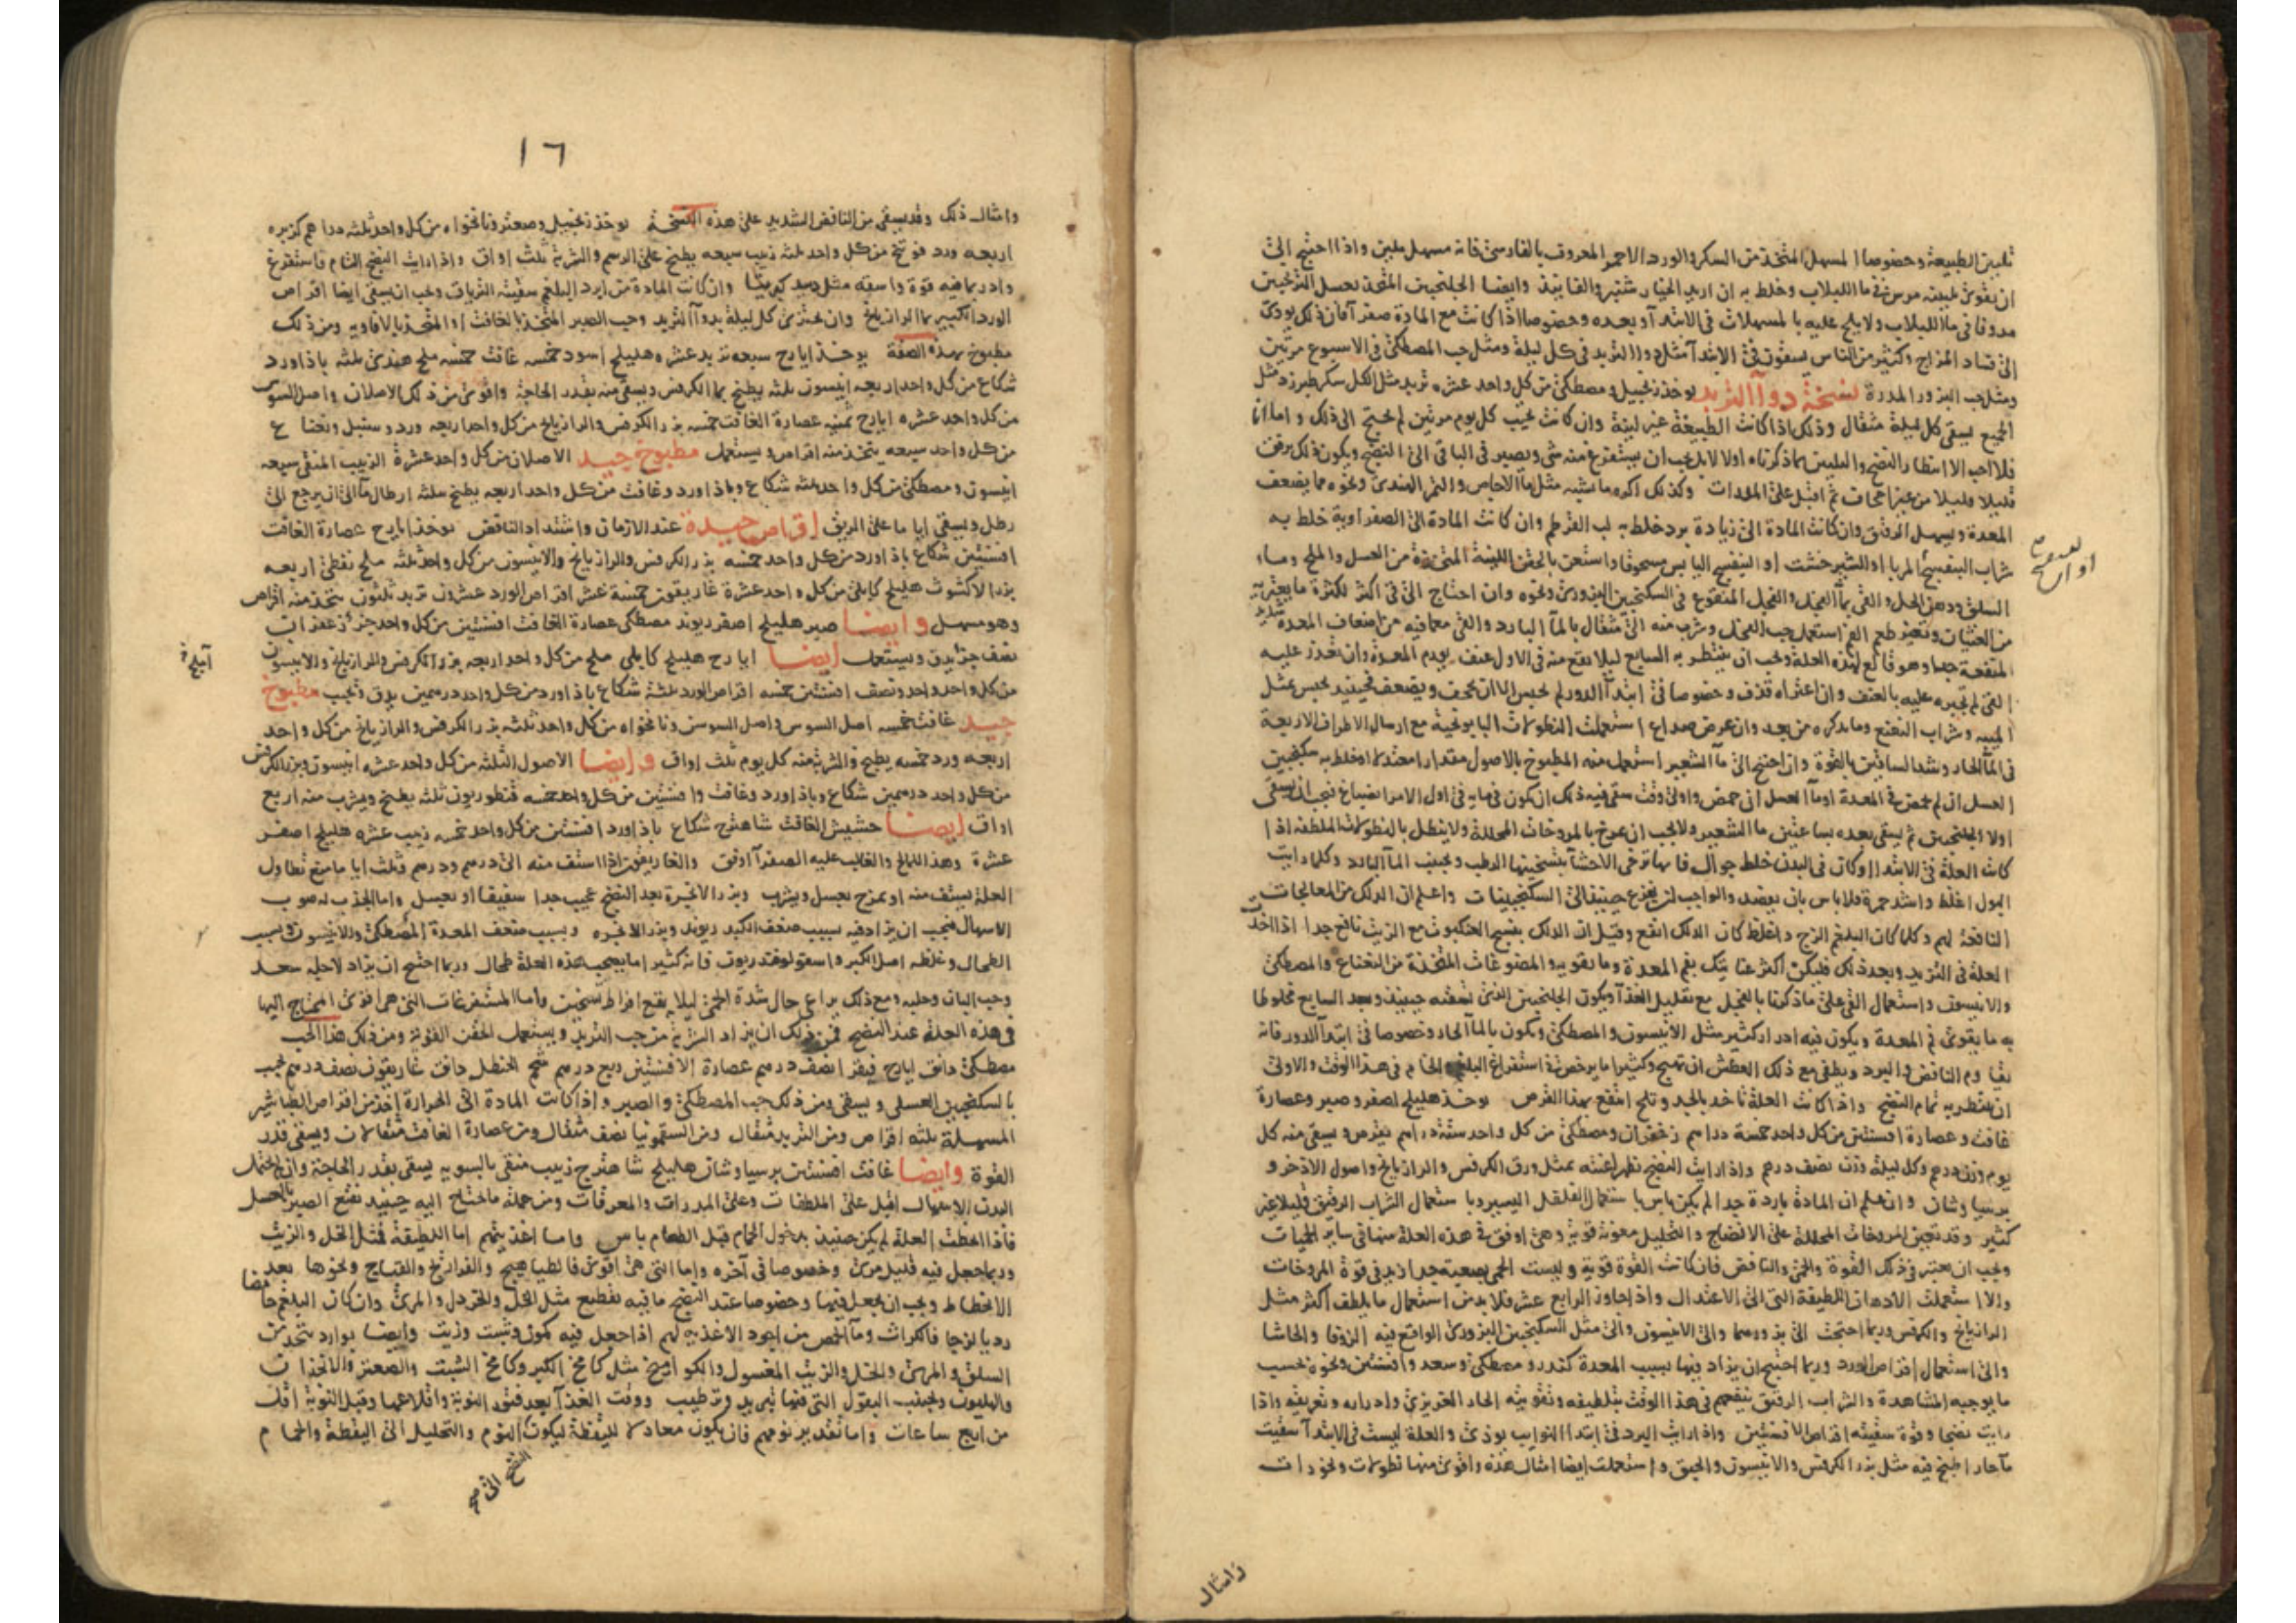 تليين الطبيعة وخصوصا المسهل المتخذ من السكر والورد الاحمر المعروف بالفارسى فانه مسهل ملين واذا احتيج الى
ان يقوى تليينه مرس فى ما اللبلاب وخلط به ان اريد الخيار شنبر والفانيذ وايضا الجلنجبين المتخذ بعسل الترنجبين
مدوفا فى ما اللبلاب ولا يلح عليه بالمسهلات فى الابتدآ وبعده وخصوصا اذا كانت مع المادة صفرآ فان ذلك يودى
الى فساد المزاج وكثير من الناس يسقون فى الابتدآ مثل دوا التربد فى كل ليلة ومثل حب المصطكى فى الاسبوع مرتين
ومثل حب البزور المدرة نسخة دوآ التربد يوخذ زنجبيل ومصطكى من كل واحد عشره تربد مثل الكل سكر طبرزد مثل
الجميع يسقى كل ليلة مثقال وذلك اذا كانت الطبيعة غير لينة وان كانت تجيب كل يوم مرتين لم يحتج الى ذلك واما انا
فلا احب الا انتظار النضج والتليين بما ذكرناه اولا لا بل يجب ان يستفرغ منه شى ويصير فى الباقى الى النضج ويكون ذلك برفق
قليلا قليلا من غير اجحاف ثم اقبل على المدرات وكذلك اكره ما يشبه مثل ما الاجاص والتمر الهندى ونحوه مما يضعف
المعدة ويسهل الرقيق وان كانت المادة الى زيادة برد خلط به لب القرطم وان كانت المادة الى الصفراوية خلط به
شراب البنفسج المربا او الشير خشت او البنفسج اليابس مسحوقا واستعن بالحقن اللينة المتخذة من العسل والملح وماء
السلق ودهن الخل والقى بمآ الفجل والفجل المنقوع فى السكنجبين البزورى ونحوه وان احتاج الى فى اكثر لكثرة ما يعتريه
من الغثيان وتغير طعم الفم استعمل حب الفجل وشرب منه الى مثقال بالمآ البارد والقى معما فيه من اضعاف المعدة
المنفعة جدا وهو قالع لهذه العلة ويجب ان ينتظر به السابع ليلا يقع منه فى الاول عنف يورم المعدة وان تعذر عليه
القى لم تجبره عليه بالعنف وان اعتراه قذف وخصوصا فى ابتدآ الدور لم يحبس الا ان يجحف ويضعف فحينيذ يحبس بمثل
الميبه وشراب النعنع وما يذكره من بعد وان عرض صداع استعملت النطولات البابونجية مع ارسال الاطراف الاربعة
فى المآ الحار وشد الساقين بالقوة وان احتيج الى مآ الشعير استعمل منه المطبوخ بالاصول مقدارا معتدلا او خلط به سكنجبين
العسل ان لم يحمض فى المعدة او مآ العسل ان حمض
اولا الجلنجبين ثم يسقى بعده بساعتين ما الشعير ولا يجب ان يمرخ بالمروخات المحللة ولا ينطل بالنطولات الملطفه اذا
كانت العلة فى الابتدا او كان فى البدن خلط جوال فانها ترخى الاحشآ بتسخينها الرطب ويجنب المآ البارد وكلما رايت
البول اغلظ واشد حمرة فلا باس بان يفصد والواجب ان يفزع حينيذ الى السكنجبينات واعلم ان الدلك من المعالجات
النافعة لهم وكلما كان البلغم الزج واغلظ كان الدلك انفع وقيل ان الدلك بنسج العنكبوت مع الزيت نافع جدا اذا اخذت
العلة فى التزيد وبعد ذلك فليكن اكثر عنايتك بفم المعدة وما يقويه والمضوغات المتخذة من النعناع والمصطكى
والانيسون واستعمال القى على ماذكرنا بالفجل مع تقليل الغذآ ويكون الجلنجبين الذى تسقيه حينيذ وبعد السابع مخلوطا
به ما يقوى فم المعدة ويكون فيه ادرار كثير مثل الانيسون والمصطكى ويكون بالمآ الحار وخصوصا فى ابتدآ الدور فانه
يقاوم النافض والبرد ويطفى مع ذلك العطش ان تهيج وكثيرا ما يرخص فى استفراغ البلغم الخام فى هذا الوقت والاولى
ان ينتظر به تمام النضج واذا كانت العلة تاخذ بالحد وتلح انتفع بهذا القرص يوخذ هليلج اصفر وصبر وعصارة
غافت وعصارة افسنتين من كل واحد خمسة دراهم زعفران ومصطكى من كل واحد ستة دراهم يقرص ويسقى منه كل
يوم وزن درهم وكل ليلة وزن نصف درهم واذا رايت النضج تظهر اعنته بمثل ورق الكرفس والرازيانج واصول الاذخر و
برسياوشان وان علم ان المادة باردة جدا لم يكن باس باستعمال الفلفل اليسير وباستعمال الشراب الرقيق قليلا غير
كثير وقد تعين المروخات المحللة على الانضاج والتحليل معونة قوية وهى اوفق فى هذه العلة منها فى ساير الحميات
ويجب ان يعتبر فى ذلك القوة والحمى والنافض فان كانت القوة قوية وليست الحمى بصعبة جدا زيد فى قوة المروخات
والا استعملت الادهان اللطيفة التى الى الاعتدال واذا جاوز الرابع عشر فلا بد من استعمال ما يلطف اكثر مثل
الرازيانج والكرفس وربما احتجت الى بزورهما والى الانيسون والى مثل السكنجبين البزورى الواقع فيه الزوفا والحاشا
والى استعمال اقراص الورد وربما احتيج ان يزاد فيها بسبب المعدة كندر ومصطكى وسعد وافسنتين ونحوه بحسب
ما يوجبه المشاهدة والشراب الرقيق ينفعهم فى هذا الوقت بتلطيفه وتقويته الحار الغريزى وادراره وتعريقه واذا
رايت نضجا وقوة سقيته اقراص الافسنتين واذا رايت البرد فى ابتدا النوايب يوذى والعلة ليست فى الابتدآ سقيت
مآ حار اطبخ فيه مثل بزر الكرفس والانيسون والحبق واستعملت ايضا امثال هذه واقوى منها نطولات وبخورات
وامثال
١٦
وامثال ذلك وقد يسقى من النافض الشديد على هذه النسخة يوخذ زنجبيل وصعتر ونانخواه من كل واحد ثلثه دراهم كزبره
اربعه ورد فوتنج من كل واحد ثلثه زبيب سبعه يطبخ على الرسم والشربة ثلث اواق واذا رايت النضج التام فاستفرغ
وادر بما فيه قوة واسقه مثل دبيد كبريتا وان كانت المادة من ابرد البلغم سقيته الترياق ويجب ان يسقى ايضا اقراص
الورد الكبير بما الرازيانج وان يجتزى كل ليلة بدوآ التربد وحب الصبر المتخذ بالغافت او المتخذ بالافاويه ومن ذلك
مطبوخ بهذه الصفة يوخذ ايارج سبعه تربد عشره هليلج اسود خمسه غافت خمسه ملح هندى ثلثه باذاورد
شكاع من كل واحد اربعه انيسون ثلثه يطبخ بما الكرفس ويسقى منه بقدر الحاجة واقوى من ذلك الاصلان واصل السوس
من كل واحد عشره ايارج ثمنيه عصارة الغافت خمسه بزر الكرفس والرازيانج من كل واحد اربعه ورد وسنبل ونعناع
من كل واحد سبعه يتخذ منه اقراص ويستعمل مطبوخ جيد الاصلان من كل واحد عشرة الزبيب المنقى سبعه
انيسون ومصطكى من كل واحد ثلثه شكاع وباذاورد وغافت من كل واحد اربعه يطبخ بثلثه ارطال مآ الى ان يرجع الى
رطل ويسقى اياما على الريق اقراص جيدة عند الازمان واشتداد النافض يوخذ ايارج عصارة الغافت
افسنتين شكاع باذاورد من كل واحد خمسه بزر الكرفس والرازيانج والانيسون من كل واحد ثلثه ملح نفطى اربعه
بزر الاكشوث هليلج كابلى من كل واحد عشرة غاريقون خمسة عشر اقراص الورد عشرون تربد ثلثون يتخذ منه اقراص
وهو مسهل وايضا صبر هليلج اصفر ريوند مصطكى عصارة الغافت افسنتين من كل واحد جزء زعفران
نصف جز يدق ويستعمل ايضا ايارج هليلج كابلى ملح من كل واحد اربعه بزر الكرفس والرازيانج والانيسون
من كل واحد واحد ونصف افسنتين خمسه اقراص الورد ثلثة شكاع باذاورد من كل واحد درهمين يدق ويحبب مطبوخ
جيد غافت خمسه اصل السوس واصل السوسن ونانخواه من كل واحد ثلثه بزر الكرفس والرازيانج من كل واحد
اربعه ورد خمسه يطبخ والشربة منه كل يوم ثلث اواق وايضا الاصول الثلثه من كل واحد عشره انيسون وبزر الكرفس
من كل واحد درهمين شكاع وباذاورد وغافت وافسنتين من كل واحد خمسه قنطوريون ثلثه يطبخ ويشرب منه اربع
اواق ايضا حشيش الغافت شاهترج شكاع باذاورد افسنتين من كل واحد خمسه زبيب عشره هليلج اصفر
عشرة وهذا للمالح والغالب عليه الصفرآ اوفق والغاريقون اذا استف منه الى درهم ودرهم وثلث اياما منع تطاول
العلة يستف منه او يمزج بعسل ويشرب وبزر الانجرة بعد النضج عجيب جدا سفيفا او بعسل واما الجذب له صوب
الاسهال فيجب ان يزاد فيه بسبب ضعف الكبد ريوند وبزر الانجره وبسبب ضعف المعدة المصطكى والانيسون وبسبب
الطحال وغلظه اصل الكبر واسقولوقندريون فانه كثيرا ما يصحب هذه العلة طحال وربما احتيج ان يزاد لاجله سعد
وحب البان وحلبه ومع ذلك يراعى حال شدة الحمى ليلا يقع افراط تسخين واما المستفرغات التى هى اقوى المحتاج اليها
فى هذه العلة عند النضج فمن ذلك ان يزاد الشربة من حب التربد ويستعمل الحقن القوية ومن ذلك هذا الحب
مصطكى دانق ايارج فيقرا نصف درهم عصارة الافسنتين ربع درهم شحم الحنظل دانق غاريقون نصف درهم يحبب
بالسكنجبين العسلى ويسقى ومن ذلك حب المصطكى والصبر واذا كانت المادة الى الحرارة اخذ من اقراص الطباشير
المسهلة ثلثه اقراص ومن التربد مثقال ومن السقمونيا نصف مثقال ومن عصارة الغافت مثقالان ويسقى قدر
القوة وايضا غافت افسنتين برسياوشان هليلج شاهترج زبيب منقى بالسويه يسقى بقدر الحاجة وان لم يحتمل
البدن الاسهال اقبل على الملطفات وعلى المدرات والمعرقات ومن جملة ما يحتاج اليه حينيذ نقيع الصبر بالعسل
فاذا انحطت العلة لم يكن حينيذ بدخول الحمام قبل الطعام باس واما اغذيتهم اما اللطيفة فمثل الخل والزيت
وربما جعل فيه قليل مرى وخصوصا فى آخره واما التى هى اقوى فالطياهيج والفراريج والقباج ونحوها بعد
الانحطاط ويجب ان يجعل فيها وخصوصا عند النضج ما فيه تقطيع مثل الخل والخردل والمرى وان كان البلغم حامضا
رديا لزجا فالكراث ومآ الحمص من اجود الاغذيه لهم اذا جعل فيه كمون وشبت وزيت وايضا بوارد تتخذ من
السلق والمرى والخل والزيت المغسول والكواميخ مثل كامخ الكبر وكامخ الشبت والصعتر والانجذان
والهليون ويجنب البقول التى فيها تبريد وترطيب ووقت الغذآ بعد فتور النوبة واقلاعها وقبل النوبة اقله
من اربع ساعات واما تقدير نومهم فان يكون معادلا لليقظة ليكون النوم والتحليل الى اليقظة والحمام
النضج الى